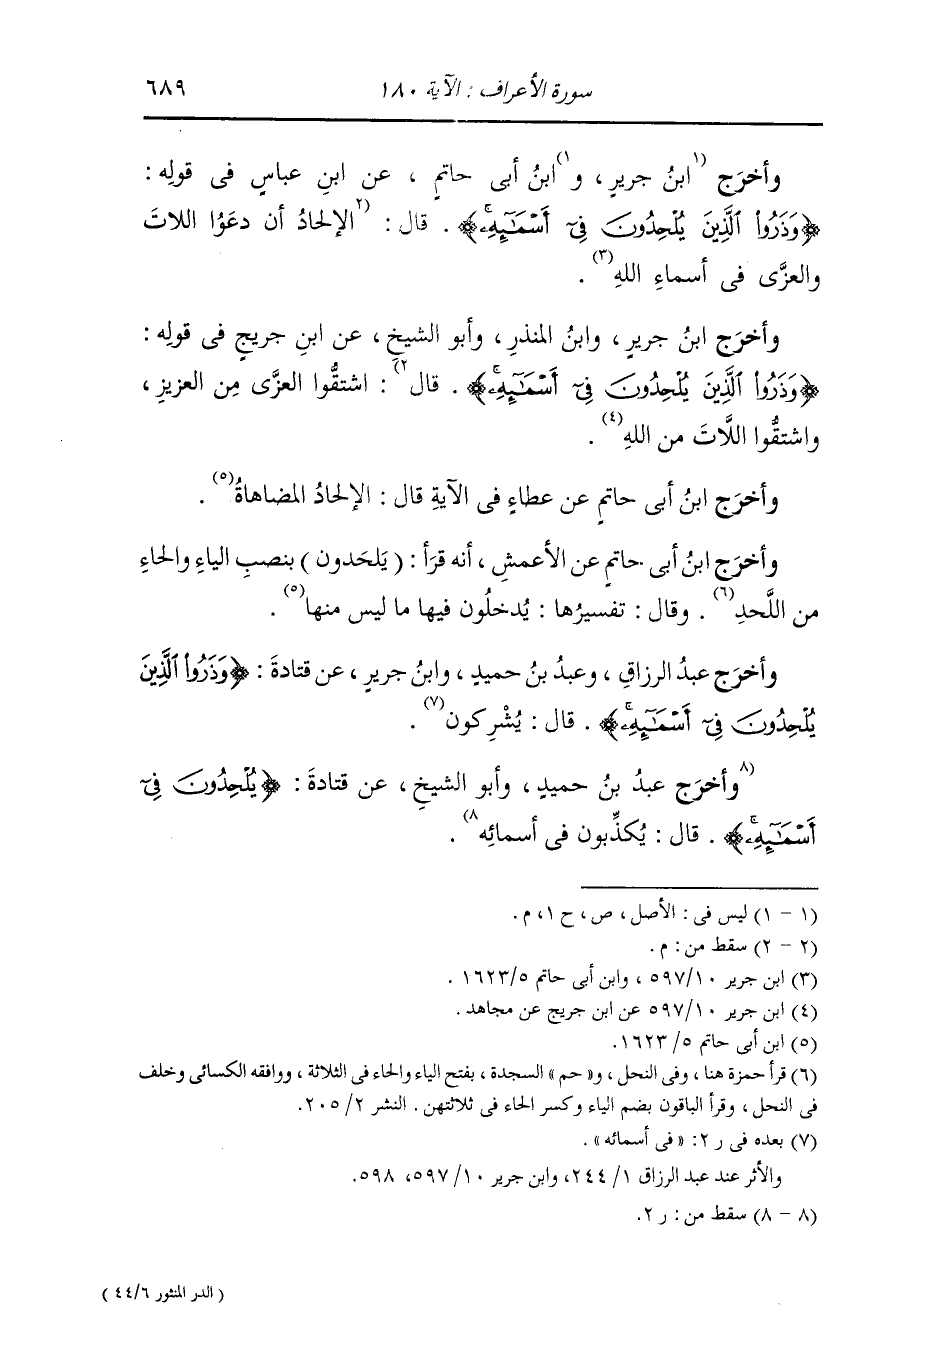 سورة الأعراف : الآية ١٨٠ ٦٨٩
وأخرَج (١)ابنُ جريرٍ ، و(١)ابنُ أبى حاتمٍ ، عن ابنِ عباسٍ فى قولِه :
﴿وَذَرُوا۟ ٱلَّذِينَ يُلْحِدُونَ فِىٓ أَسْمَـٰٓئِهِۦۚ﴾ . قال : (٢)الإلحادُ أن دعَوُا اللاتَ
والعزَّى فى أسماءِ اللهِ(٣) .
وأخرَج ابنُ جريرٍ ، وابنُ المنذرِ ، وأبو الشيخِ ، عن ابنِ جريجٍ فى قولِه :
﴿وَذَرُوا۟ ٱلَّذِينَ يُلْحِدُونَ فِىٓ أَسْمَـٰٓئِهِۦۚ﴾ . قال(٢) : اشتقُّوا العزَّى مِن العزيزِ ،
واشتقُّوا اللَّاتَ من اللهِ(٤) .
وأخرَج ابنُ أبى حاتمٍ عن عطاءٍ فى الآيةِ قال : الإلحادُ المضاهاةُ(٥) .
وأخرَج ابنُ أبى حاتمٍ عن الأعمشِ ، أنه قرَأ : ( يَلحَدون ) بنصبِ الياءِ والحاءِ
من اللَّحدِ(٦) . وقال : تفسيرُها : يُدخلُون فيها ما ليس منها(٥) .
وأخرَج عبدُ الرزاقِ ، وعبدُ بنُ حميدٍ ، وابنُ جريرٍ ، عن قتادةَ : ﴿وَذَرُوا۟ ٱلَّذِينَ
يُلْحِدُونَ فِىٓ أَسْمَـٰٓئِهِۦۚ﴾ . قال : يُشْرِكون(٧) .
(٨)وأخرَج عبدُ بنُ حميدٍ ، وأبو الشيخِ ، عن قتادةَ : ﴿يُلْحِدُونَ فِىٓ
أَسْمَـٰٓئِهِۦۚ﴾ . قال : يُكذِّبون فى أسمائِه(٨) .
(١ - ١) ليس فى : الأصل ، ص ، ح ١، م .
(٢ - ٢) سقط من : م .
(٣) ابن جرير ٥٩٧/١٠ ، وابن أبى حاتم ١٦٢٣/٥ .
(٤) ابن جرير ٥٩٧/١٠ عن ابن جريج عن مجاهد .
(٥) ابن أبى حاتم ١٦٢٣/٥.
(٦) قرأ حمزة هنا ، وفى النحل ، و« حم » السجدة ، بفتح الياء والحاء فى الثلاثة ، ووافقه الكسائى وخلف
فى النحل ، وقرأ الباقون بضم الياء وكسر الحاء فى ثلاثتهن . النشر ٢/ ٢٠٥.
(٧) بعده فى ر ٢: « فى أسمائه » .
والأثر عند عبد الرزاق ١/ ٢٤٤، وابن جرير ٥٩٧/١٠، ٥٩٨.
(٨ - ٨) سقط من : ر ٢.
( الدر المنثور ٤٤/٦ )